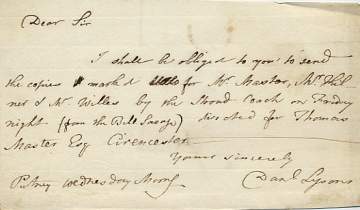 Dear Sir
I shall be obliged to you to send
the copies mark'd for Mr. Master, Mr. Phil
ner & Mr. Willes by the Stroud Coach on Friday
night (from the Bell Savage) directed for Thomas
Master Esq Cirencester
Yours sincerely
Danl Lysons
Putney Wednesday Morng